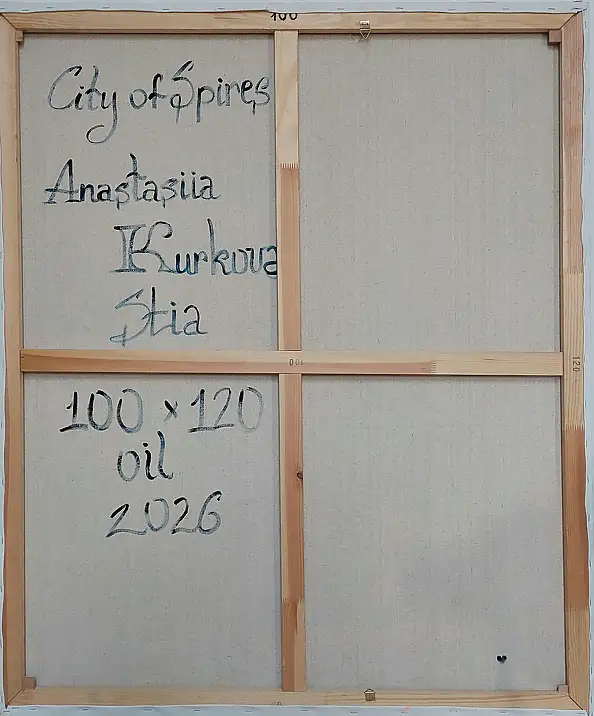 100
City of Spires
Anastasiia
Kurkova
Stia
100
120
100 x 120
oil
2026